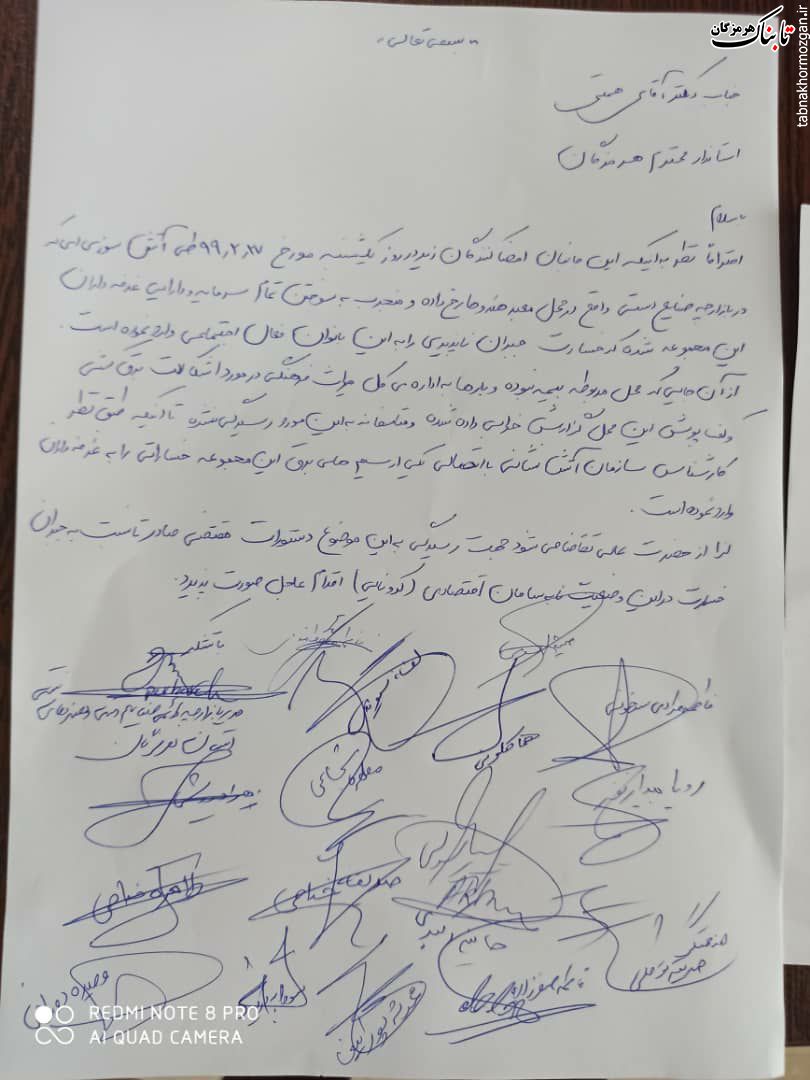 تابناک هرمزگان
tabnakhormozgan.ir
"بسمه تعالی"
جناب دکتر آقای همتی
استاندار محترم هرمزگان
باسلام
احتراماً نظر به اینکه این جانبان امضا کنندگان زیر در روز یکشنبه مورخ ۹۹٫۲٫ طی آتش سوزی ای که
در بازارچه صنایع دستی واقع در محل معبد هندوها رخ داده و منجر به سوختن تمام سرمایه و دارایی غرفه داران
این مجموعه شده که خسارت جبران ناپذیری را به این بانوان فعال اجتماعی وارد نموده است.
از آن جایی که محل مربوطه بیمه نبوده و بارها به اداره ی کل میراث فرهنگی در مورد اشکالات برق کشی
و کف پوش این محل گزارش خرابی داده شده و متاسفانه به این مورد رسیدگی نشده تا اینکه طبق نظر
کارشناس سازمان آتش نشانی با اتصالی یکی از سیم های برق این مجموعه خساراتی را به غرفه داران
وارد نموده است.
لذا از حضرت عالی تقاضا می شود جهت رسیدگی به این موضوع دستورات مقتضی صادر تا نسبت به جبران
خسارت در این وضعیت نابسامان اقتصادی (کرونایی) اقدام عاجل صورت پذیرد.
باتشکر
مدیر بازارچه دائمی صنایع دستی و هنرهای
استان هرمزگان
فاطمه مرادی
رویا بیدار
صدیقه
طاهره
فاطمه اصغرزاده
REDMI NOTE 8 PRO
AI QUAD CAMERA